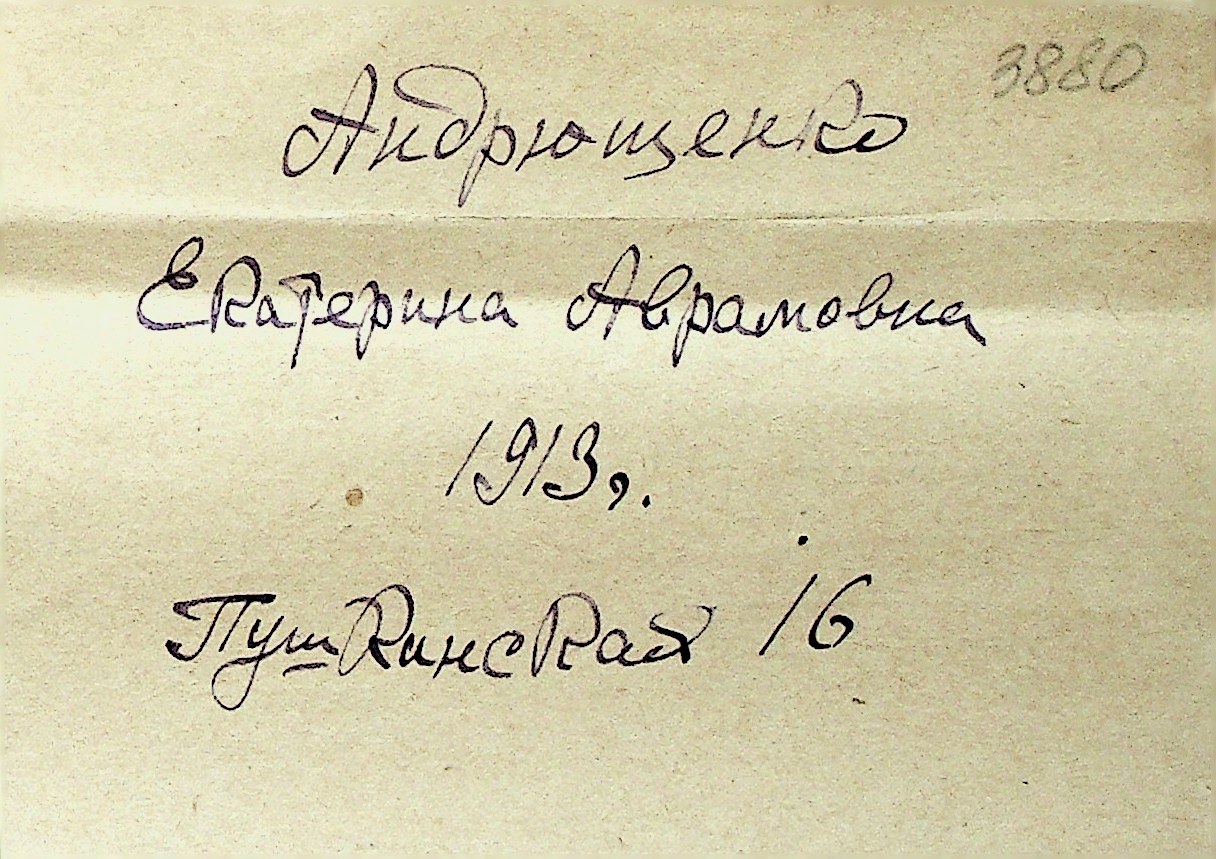 3880
Андрющенко
Екатерина Аврамовна
1913 г.
Пушкинская 16